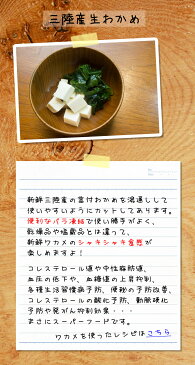 三陸産生わかめ
新鮮三陸産の芯付わかめを湯通しして
使いやすいようにカットしてあります。
便利なバラ凍結で使い勝手がよく、
乾燥品や塩蔵品とは違って、
新鮮ワカメのシャキシャキ食感が
楽しめますよ!
コレステロール値や中性脂肪値、
血圧の低下や、血糖値の上昇抑制、
各種生活習慣病予防、便秘の予防改善、
コレステロールの酸化予防、動脈硬化
予防や発がん抑制効果・・・
まさにスーパーフードです。
ワカメを使ったレシピはこちら